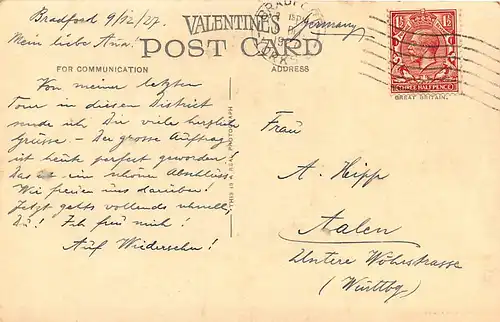 Bradford 9/12/27.
Mein liebe Ana.
VALENTINE'S
POST CARD
Germany
FOR COMMUNICATION
ADDRESS
THREE HALFPENCE
GREAT BRITAIN.
Von meiner letzten
Tour in diesen District
sende ich Dir viele herzliche
Grüsse. - Der grosse Auftrag
ist heute perfect geworden!
Das ist ein schöner Abschluss
Wir freuen uns darüber!
Jetzt gehts vollends schnell
zu! Ich freu mich!
Auf Wiedersehn!
THIS IS A REAL PHOTOGRAPH
Frau
A. Hipp
Aalen
Untere Wöhrstrasse
(Württbg)